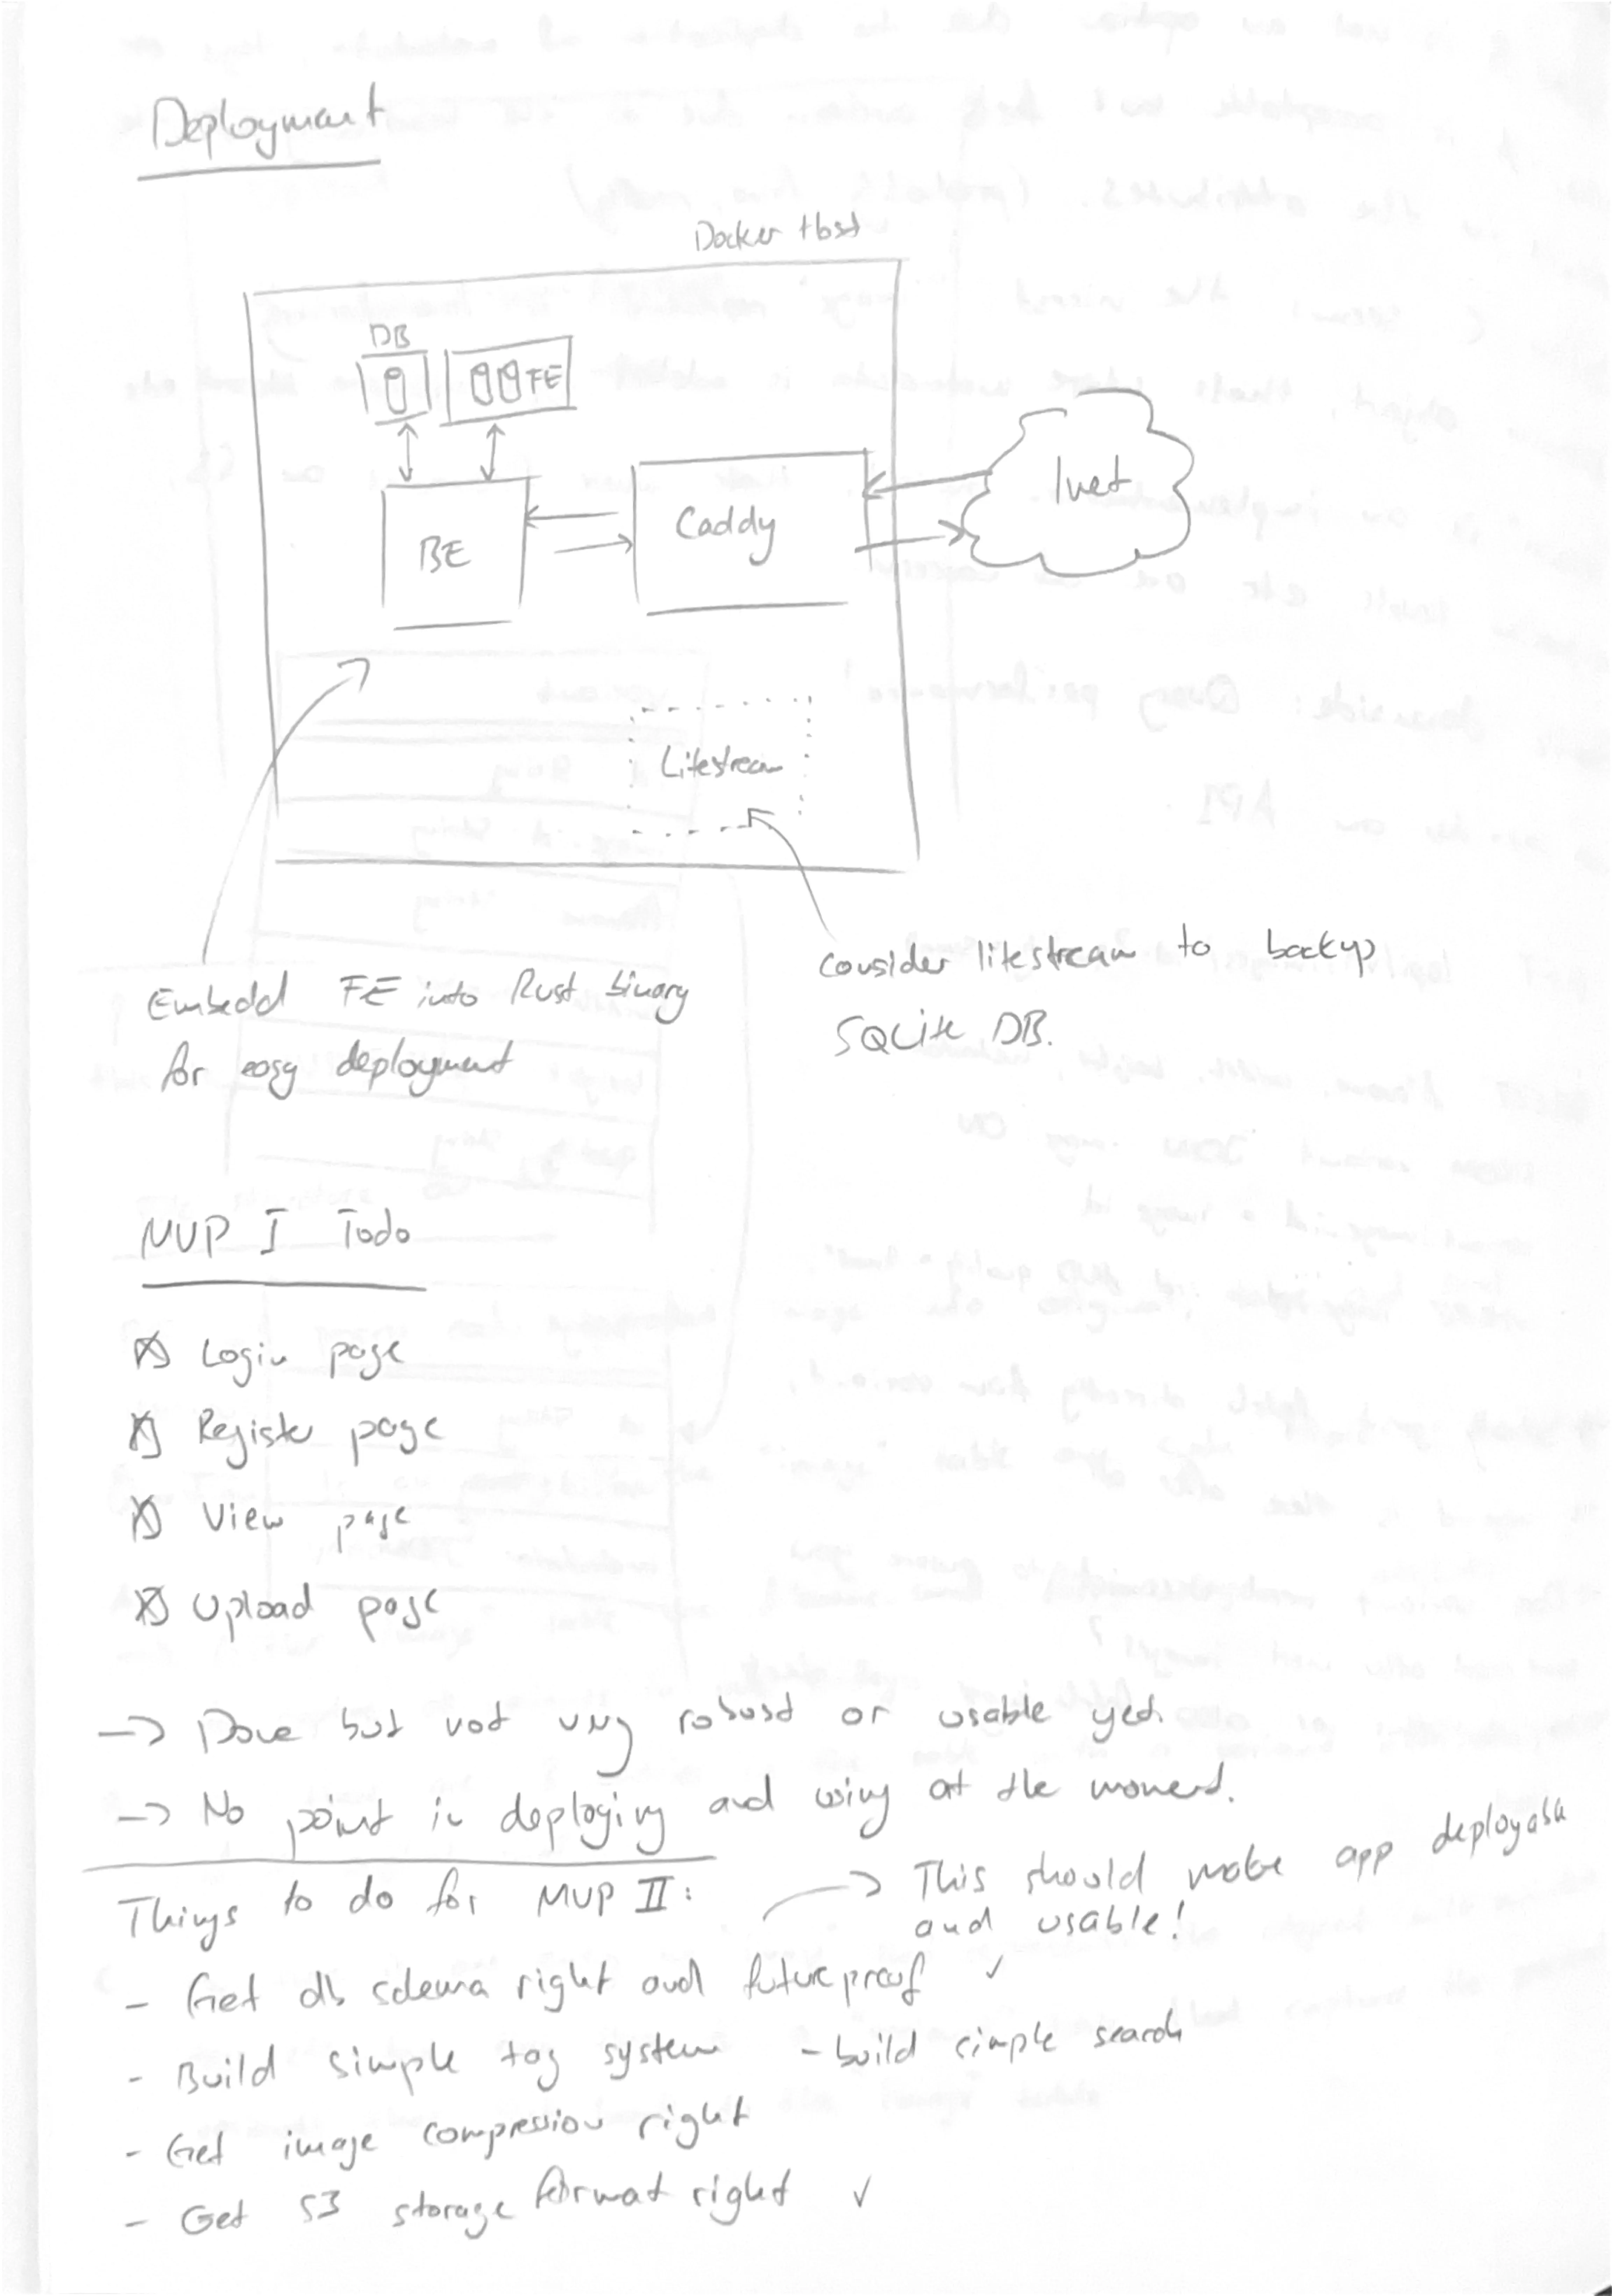 Deployment
Docker Host
DB
FE
BE
Caddy
Inet
Litestream
Embedd FE into Rust binary
for easy deployment
consider litestream to backup
SQLite DB.
MVP I Todo
Login page
Register page
View page
Upload page
-> Done but not very robust or usable yet.
-> No point in deploying and using at the moment.
Things to do for MVP II:
-> This should make app deployable
and usable!
- Get db schema right and futureproof ✓
- Build simple tag system - build simple search
- Get image compression right
- Get S3 storage format right ✓